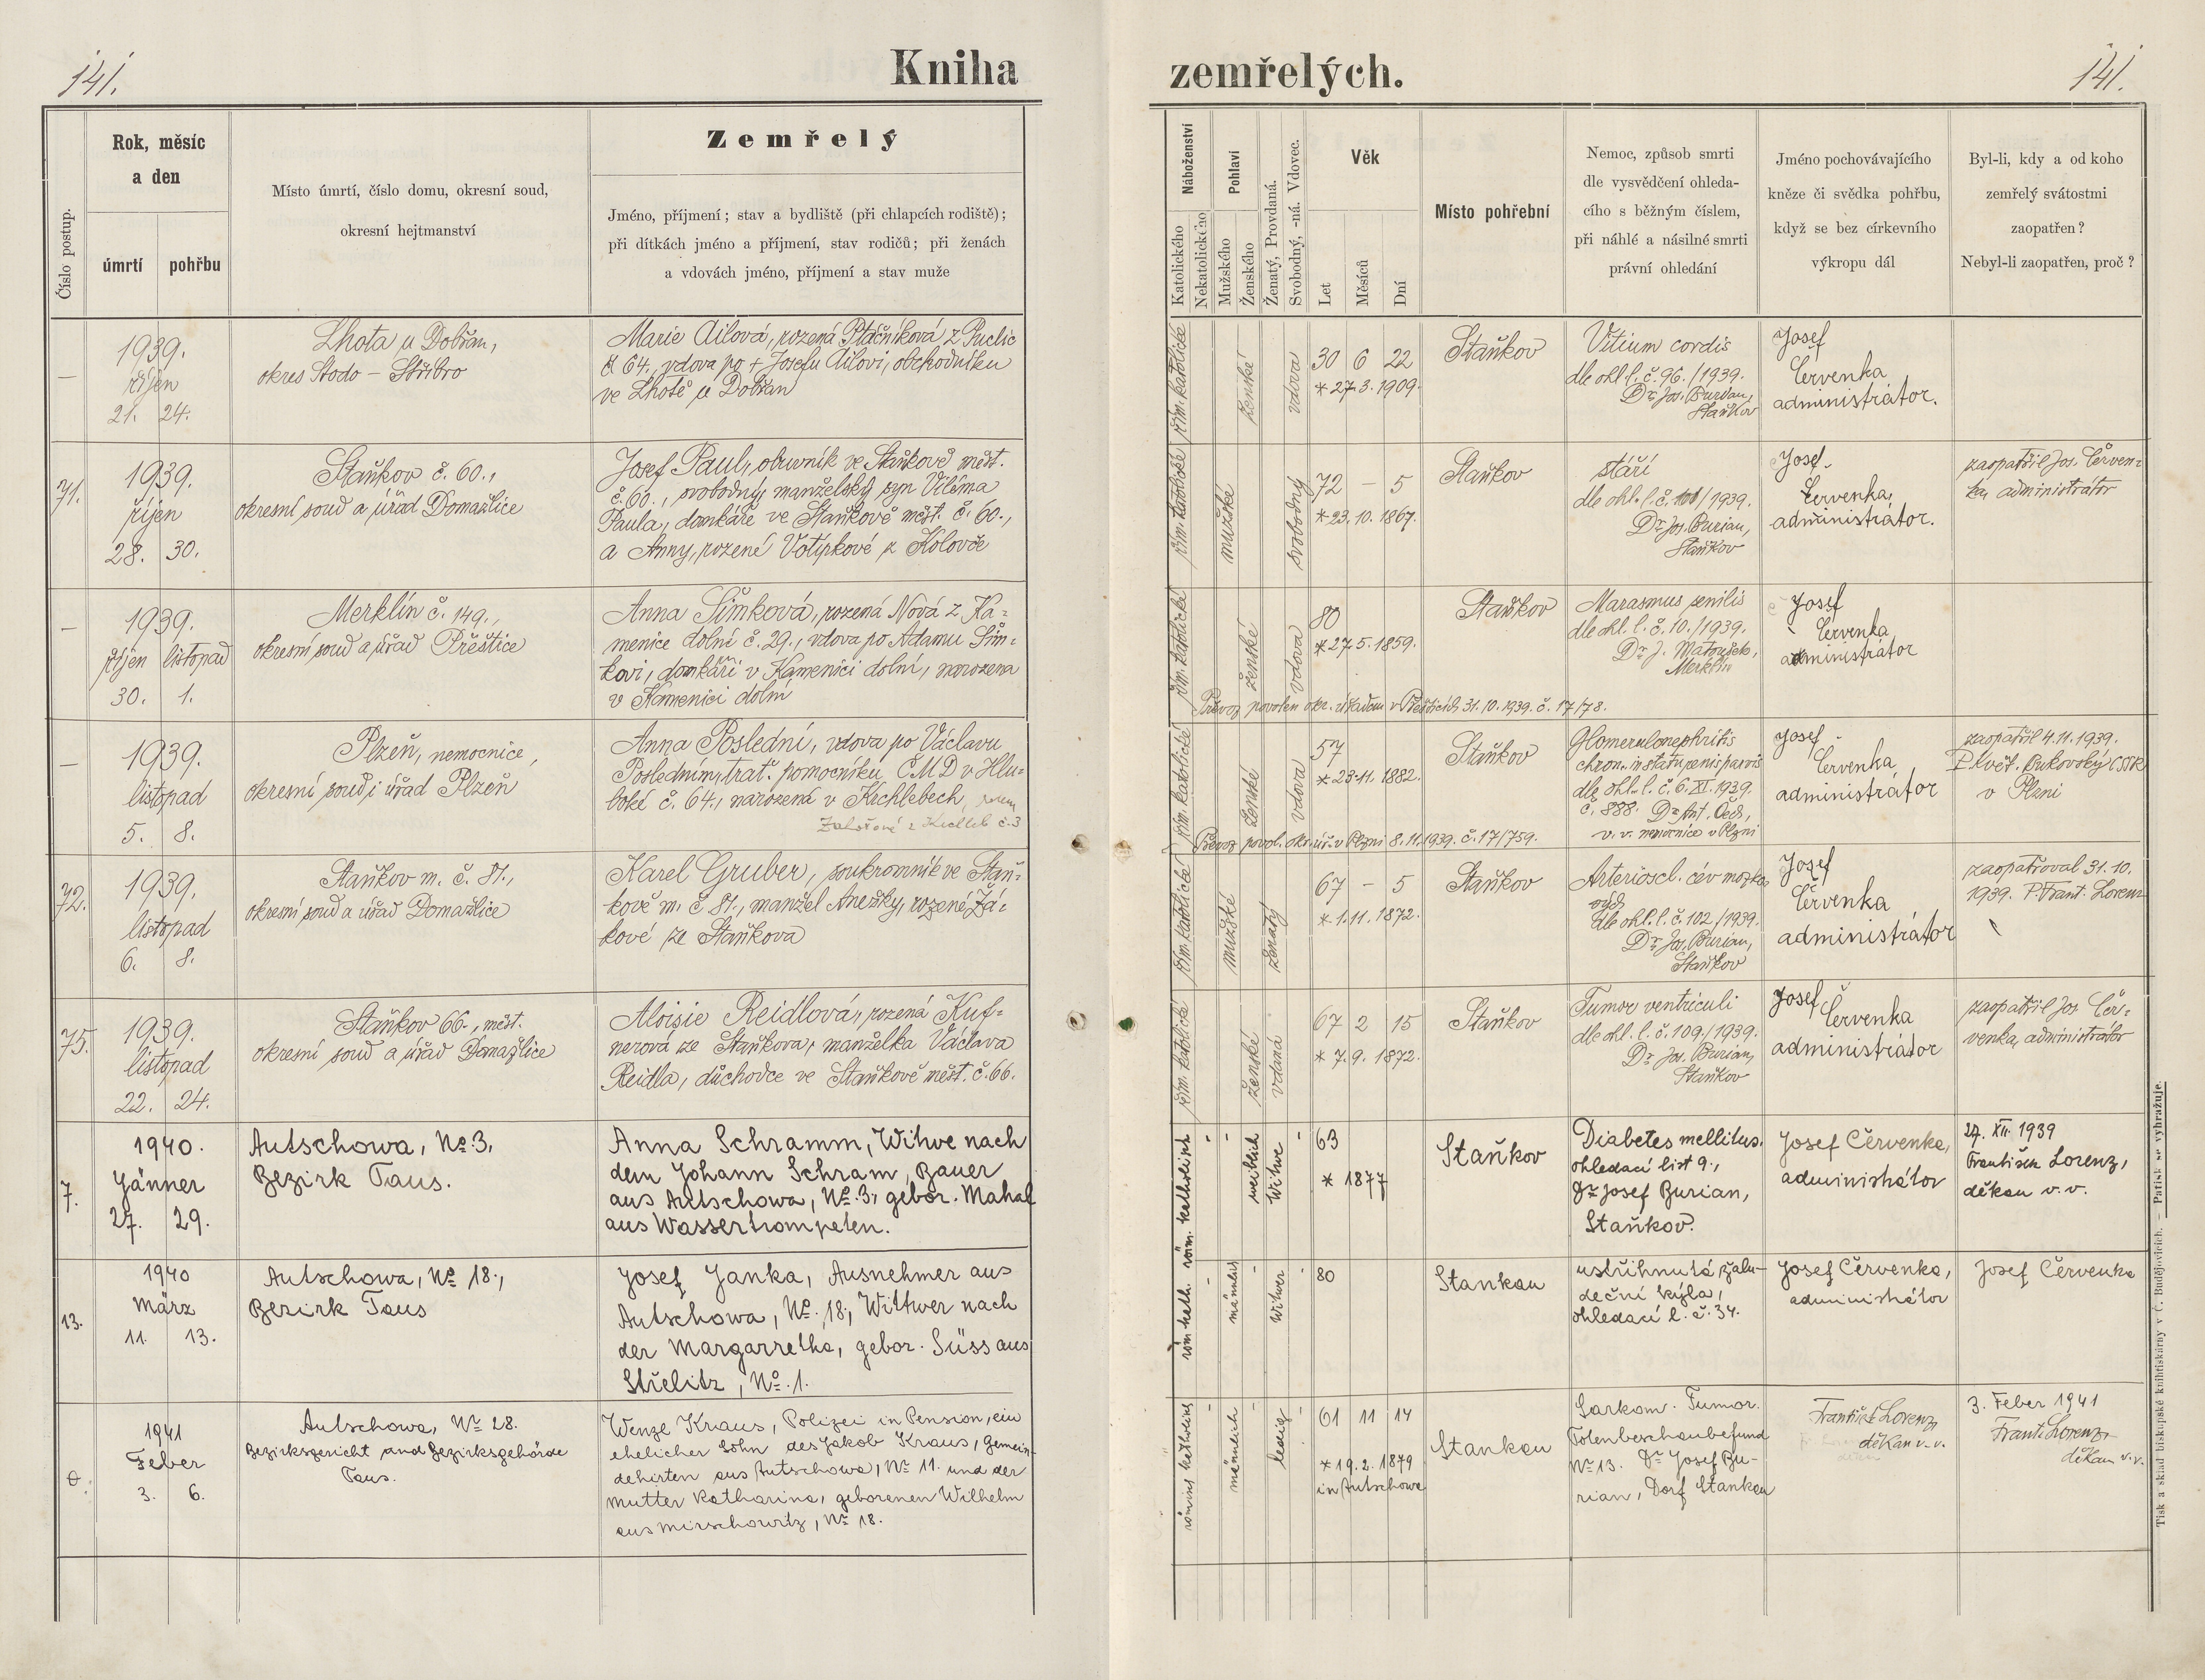 141.
Kniha
zemřelých.
141.
Číslo postup.
Rok, měsíc
a den
úmrtí
pohřbu
Místo úmrtí, číslo domu, okresní soud,
okresní hejtmanství
Zemřelý
Jméno, příjmení; stav a bydliště (při chlapcích rodiště);
při dítkách jméno a příjmení, stav rodičů; při ženách
a vdovách jméno, příjmení a stav muže
Náboženství
Katolického
Nekatolického
Pohlaví
Mužského
Ženského
Ženatý, Provdaná.
Svobodný, -ná. Vdovec.
Věk
Let
Měsíců
Dní
Místo pohřební
Nemoc, způsob smrti
dle vysvědčení ohleda-
cího s běžným číslem,
při náhlé a násilné smrti
právní ohledání
Jméno pochovávajícího
kněze či svědka pohřbu,
když se bez církevního
výkropu dál
Byl-li, kdy a od koho
zemřelý svátostmi
zaopatřen?
Nebyl-li zaopatřen, proč?
—
1939.
říjen
21. 24.
Lhota u Dobřan,
okres Stodo – Stříbro
Marie Ailová, rozená Ptáčníková z Puclic
č 64., vdova po + Josefu Ailovi, obchodníku
ve Lhotě u Dobřan
řím. katolické
ženské
vdova
30 6 22
* 27.3.1909.
Staňkov
Vitium cordis
dle ohl. l. č. 96./1939.
Dr. Jos. Burian,
Staňkov
Josef
Červenka
administrátor.
71.
1939.
říjen
28. 30.
Staňkov č. 60.,
okresní soud a úřad Domažlice
Josef Paul, obuvník ve Staňkově měst.
č. 60., svobodný, manželský syn Viléma
Paula, domkáře ve Staňkově měst. č. 60.,
a Anny, rozené Votípkové z Kolovče
řím. katolické
mužské
svobodný
72 – 5
* 23.10.1867.
Staňkov
stáří
dle ohl. l. č. 101/1939.
Dr. Jos. Burian,
Staňkov
Josef
Červenka,
administrátor.
zaopatřil Jos. Červen=
ka, administrátor
—
1939.
říjen listopad
30. 1.
Merklín č. 149.,
okresní soud a úřad Přeštice
Anna Šimková, rozená Nová z Ka=
menice dolní č. 29., vdova po Adamu Šim=
kovi, domkáři v Kamenici dolní, narozena
v Kamenici dolní
řím. katolické
ženské
vdova
80
* 27.5.1859.
Staňkov
Marasmus senilis
dle ohl. l. č. 10./1939.
Dr. J. Matoušek,
Merklín
Josef
Červenka
administrátor
Převoz povolen okr. úřadem v Přešticích 31.10.1939. č. 17/78.
—
1939.
listopad
5. 8.
Plzeň, nemocnice,
okresní soud i úřad Plzeň
Anna Poslední, vdova po Václavu
Posledním, trať. pomocníku ČMD v Hlu=
boké č. 64., narozená v Krchlebech,
č. 3
řím. katolické
ženské
vdova
57
* 23.11.1882.
Staňkov
Glomerulonephritis
chron. in statu
dle ohl. l. č. 6. XI. 1939.
č. 888. Dr. Ant.
v. v. nemocnice v Plzni
Josef
Červenka
administrátor
zaopatřil 4.11.1939.
P. Květ. Bukovský
v Plzni
Převoz povol. okr. úř. v Plzni 8.11.1939. č. 17/759.
72.
1939.
listopad
6. 8.
Staňkov m. č. 81.,
okresní soud a úřad Domažlice
Karel Gruber, soukromník ve Staň=
kově m. č 81., manžel Anežky, rozené Žá=
kové ze Staňkova
řím. katolické
mužské
ženatý
67 – 5
* 1.11.1872.
Staňkov
Arterioscl. cév mozko
vých
dle ohl. l. č. 102/1939.
Dr. Jos. Burian,
Staňkov
Josef
Červenka
administrátor
zaopatřoval 31.10.
1939. P. Frant. Lorenz
75.
1939.
listopad
22. 24.
Staňkov 66., měst.
okresní soud a úřad Domažlice
Aloisie Reidlová, rozená Kuf=
nerová ze Staňkova, manželka Václava
Reidla, důchodce ve Staňkově měst. č. 66.
řím. katolické
ženské
vdaná
67 2 15
* 7.9.1872.
Staňkov
Tumor ventriculi
dle ohl. l. č. 109/1939.
Dr. Jos. Burian,
Staňkov
Josef
Červenka
administrátor
zaopatřil Jos. Čer=
venka, administrátor
7.
1940.
Jänner
27. 29.
Autschowa, No 3,
Bezirk Taus.
Anna Schramm, Witwe nach
dem Johann Schram, Bauer
aus Autschowa, No. 3, gebor. Mahal
aus Wassertrompeten.
röm. katholisch
weiblich
Witwe
63
* 1877
Staňkov
Diabetes mellitus.
ohledací list 9.,
Dr Josef Burian,
Staňkov.
Josef Červenka,
administrátor
27. XII. 1939
František Lorenz,
děkan v. v.
13.
1940
März
11. 13.
Autschowa, No 18.,
Bezirk Taus
Josef Janka, Ausnehmer aus
Autschowa, No. 18, Wittwer nach
der Margarretha, gebor. Süss aus
Střelitz, No. 1.
röm kath.
männlich
Witwer
80
Stankau
ustřihnutá žalu-
deční kýla,
ohledací l. č. 34.
Josef Červenka,
administrátor
Josef Červenka
1941
Feber
3. 6.
Autschowa, No 28.
Bezirksgericht and Bezirksgehörde
Taus.
Wenze Kraus, Polizei in Pension, ein
ehelicher Sohn des Jakob Kraus, Gemein-
dehirten aus Autschowa, No 11. und der
Mutter Katharina, geborenen Wilhelm
aus Mirschowitz, No 18.
männlich
ledig
61 11 14
* 19.2.1879
in Autschowa
Stankau
Sarkom. Tumor.
Totenbeschaubefund
No 13. Dr Josef Bu-
rian, Dorf Stankau
František Lorenz,
děkan v. v.
3. Feber 1941
Franti Lorenz,
děkan v. v.
Tisk a sklad biskupské knihtiskárny v Č. Budějovicích. — Patisk se vyhražuje.